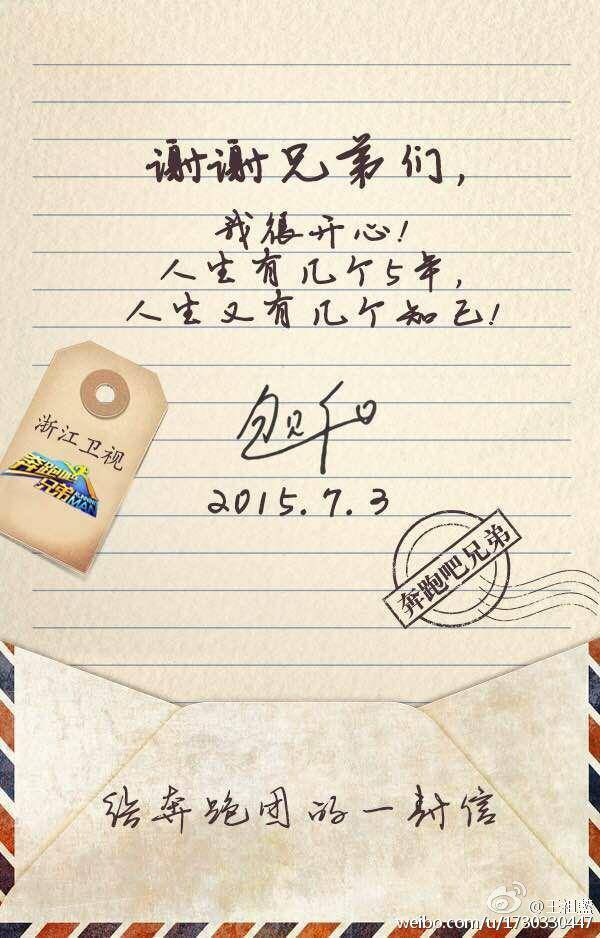 谢谢兄弟们,
我很开心!
人生有几个5年,
人生又有几个知己!
浙江卫视
奔跑吧
兄弟
RUNNING
MAN
2015.7.3
奔跑吧兄弟
给奔跑团的一封信
@王祖蓝
weibo.com/u/1730330447